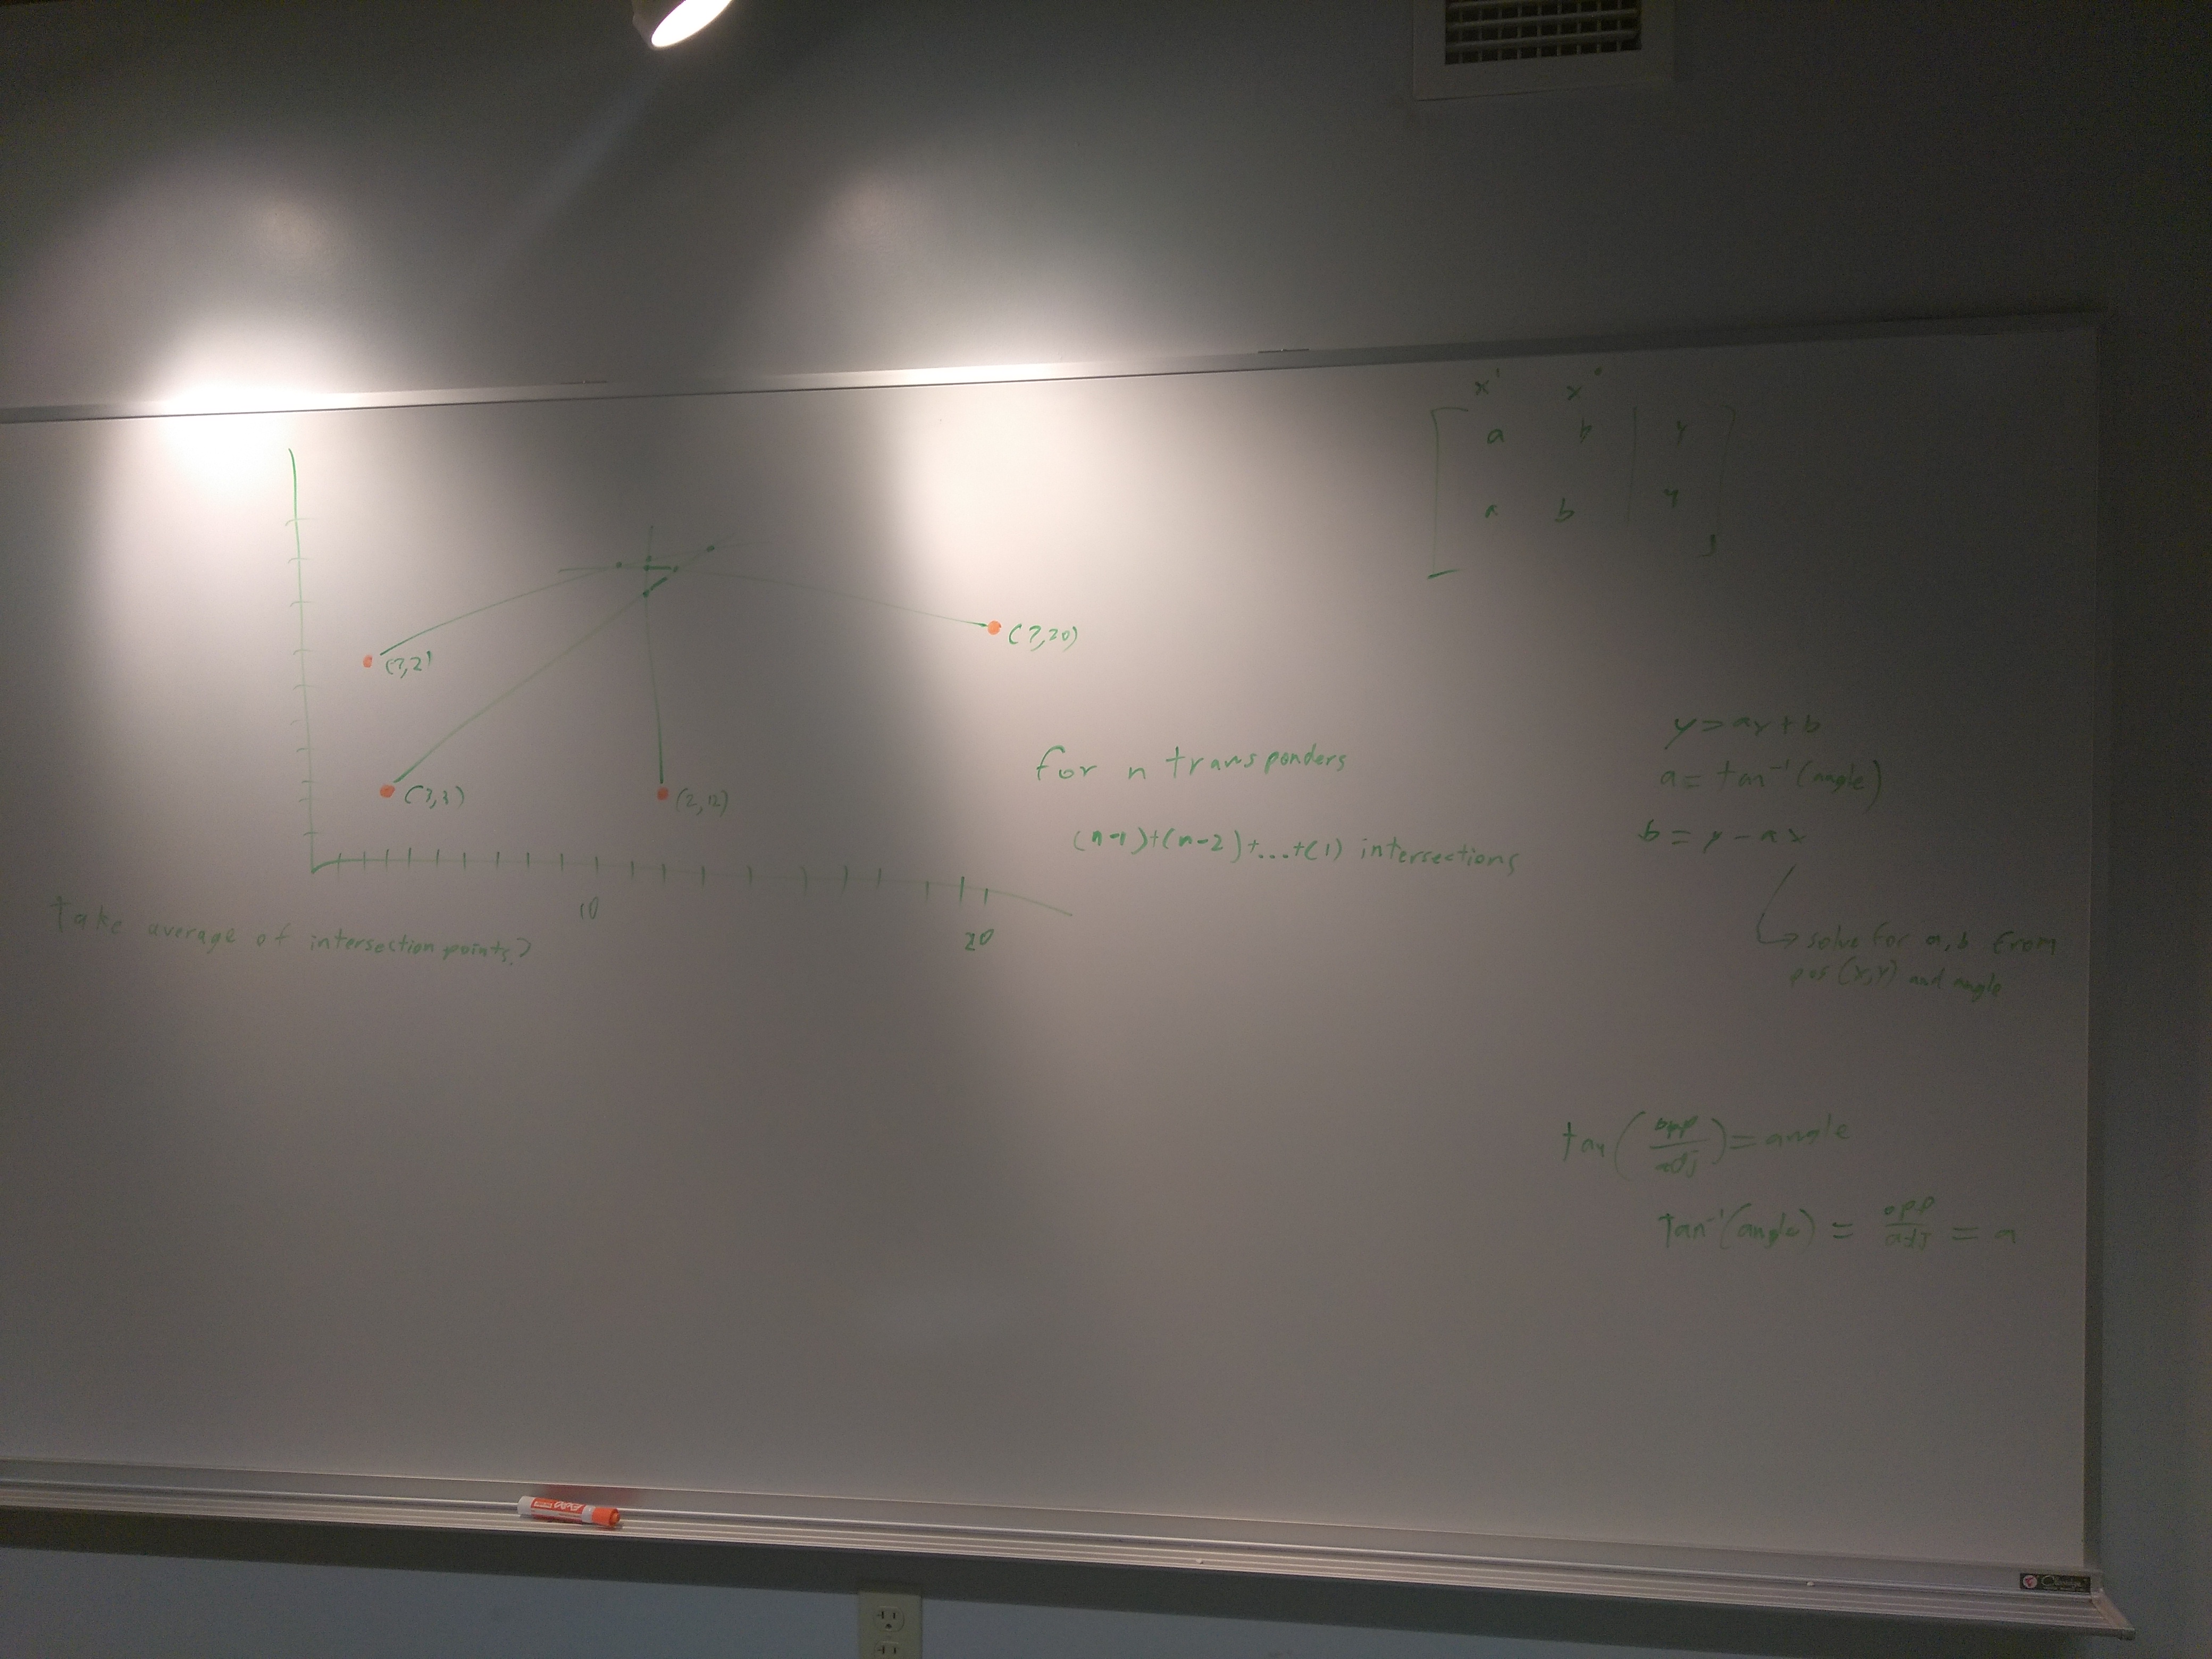 x¹ x⁰
a b | y
a b | y
(7,2)
(7,20)
(3,3)
(2,12)
10
20
take average of intersection points?
for n transponders
(n-1)+(n-2)+...+(1) intersections
y=ax+b
a= tan⁻¹(angle)
b = y - ax
→ solve for a,b from
pos (x,y) and angle
tan(opp/adj)=angle
tan⁻¹(angle) = opp/adj = a
EXPO